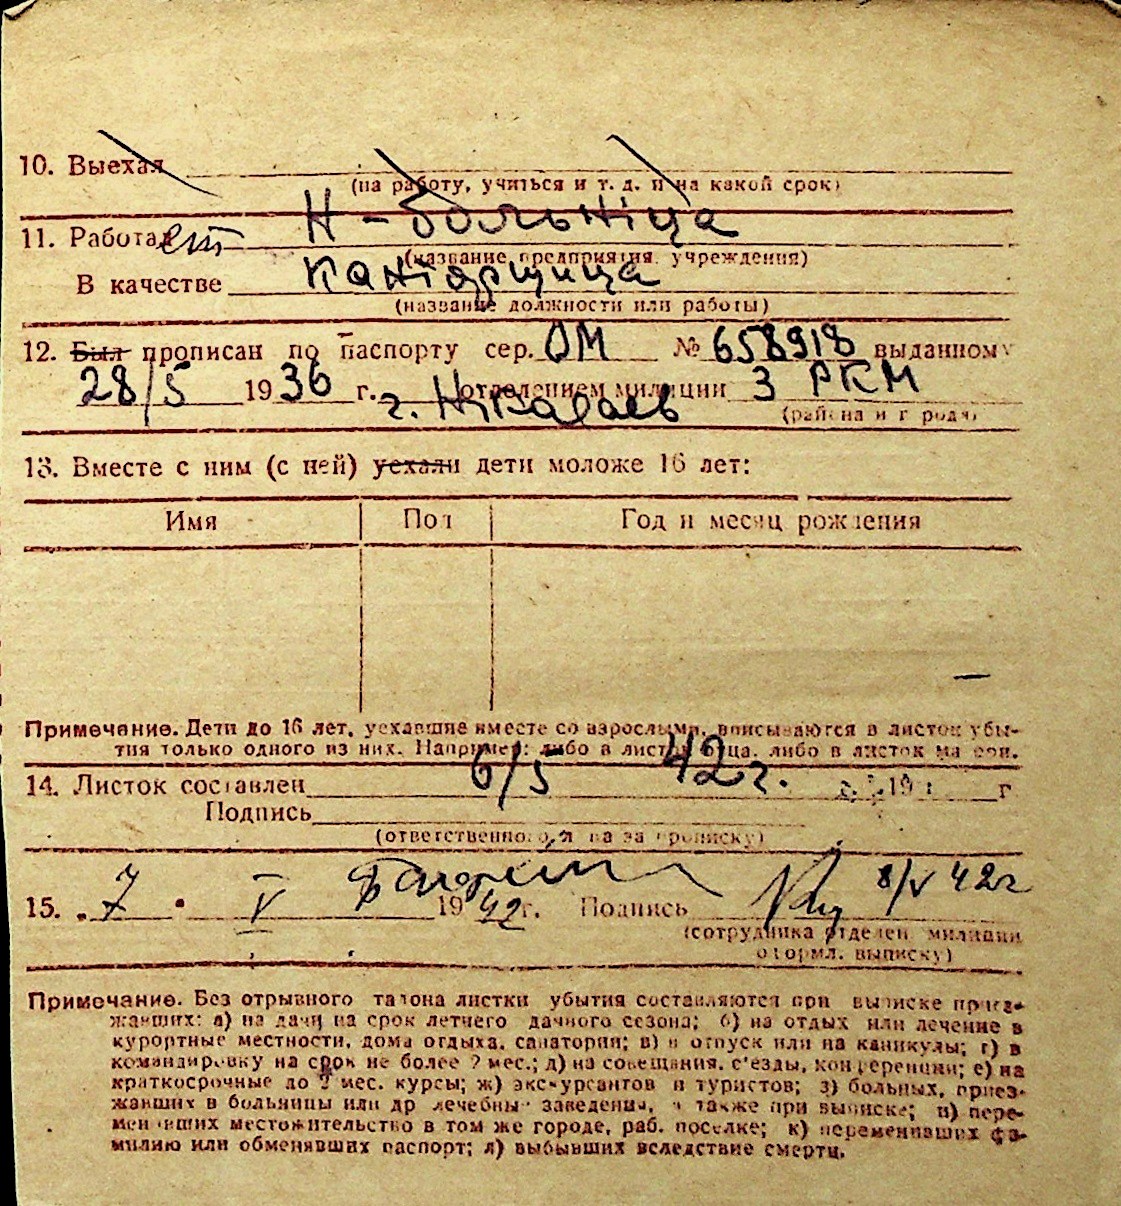 10. Выехал
(на работу, учиться и т. д. и на какой срок)
Н - больніца
11. Работает
(название предприятия, учреждения)
канторщица
В качестве
(название должности или работы)
12. Был прописан по паспорту сер. ОМ № 658918 выданному
28/5 1936 г. отделением милиции 3 РКМ
г. Ніколаев
(района и города)
13. Вместе с ним (с ней) уехали дети моложе 16 лет:
Имя Пол Год и месяц рождения
—
Примечание. Дети до 16 лет, уехавшие вместе со взрослыми, вписываются в листок убы-
тия только одного из них. Например: либо в листок отца, либо в листок матери.
14. Листок составлен 6/5 42 г. 19 г
Подпись
(ответственного лица за прописку)
15. „7" V 1942 г. Подпись 8/V 42г
(сотрудника отделен. милиции
оформл. выписку)
Примечание. Без отрывного талона листки убытия составляются при выписке приез-
жавших: а) на дачи на срок летнего дачного сезона; б) на отдых или лечение в
курортные местности, дома отдыха, санатории; в) в отпуск или на каникулы; г) в
командировку на срок не более 2 мес.; д) на совещания, с'езды, конференции; е) на
краткосрочные до 2 мес. курсы; ж) экскурсантов и туристов; з) больных, приез-
жавших в больницы или др лечебные заведения, а также при выписке; и) пере-
менивших местожительство в том же городе, раб. поселке; к) переменивших фа-
милию или обменявших паспорт; л) выбывших вследствие смерти.